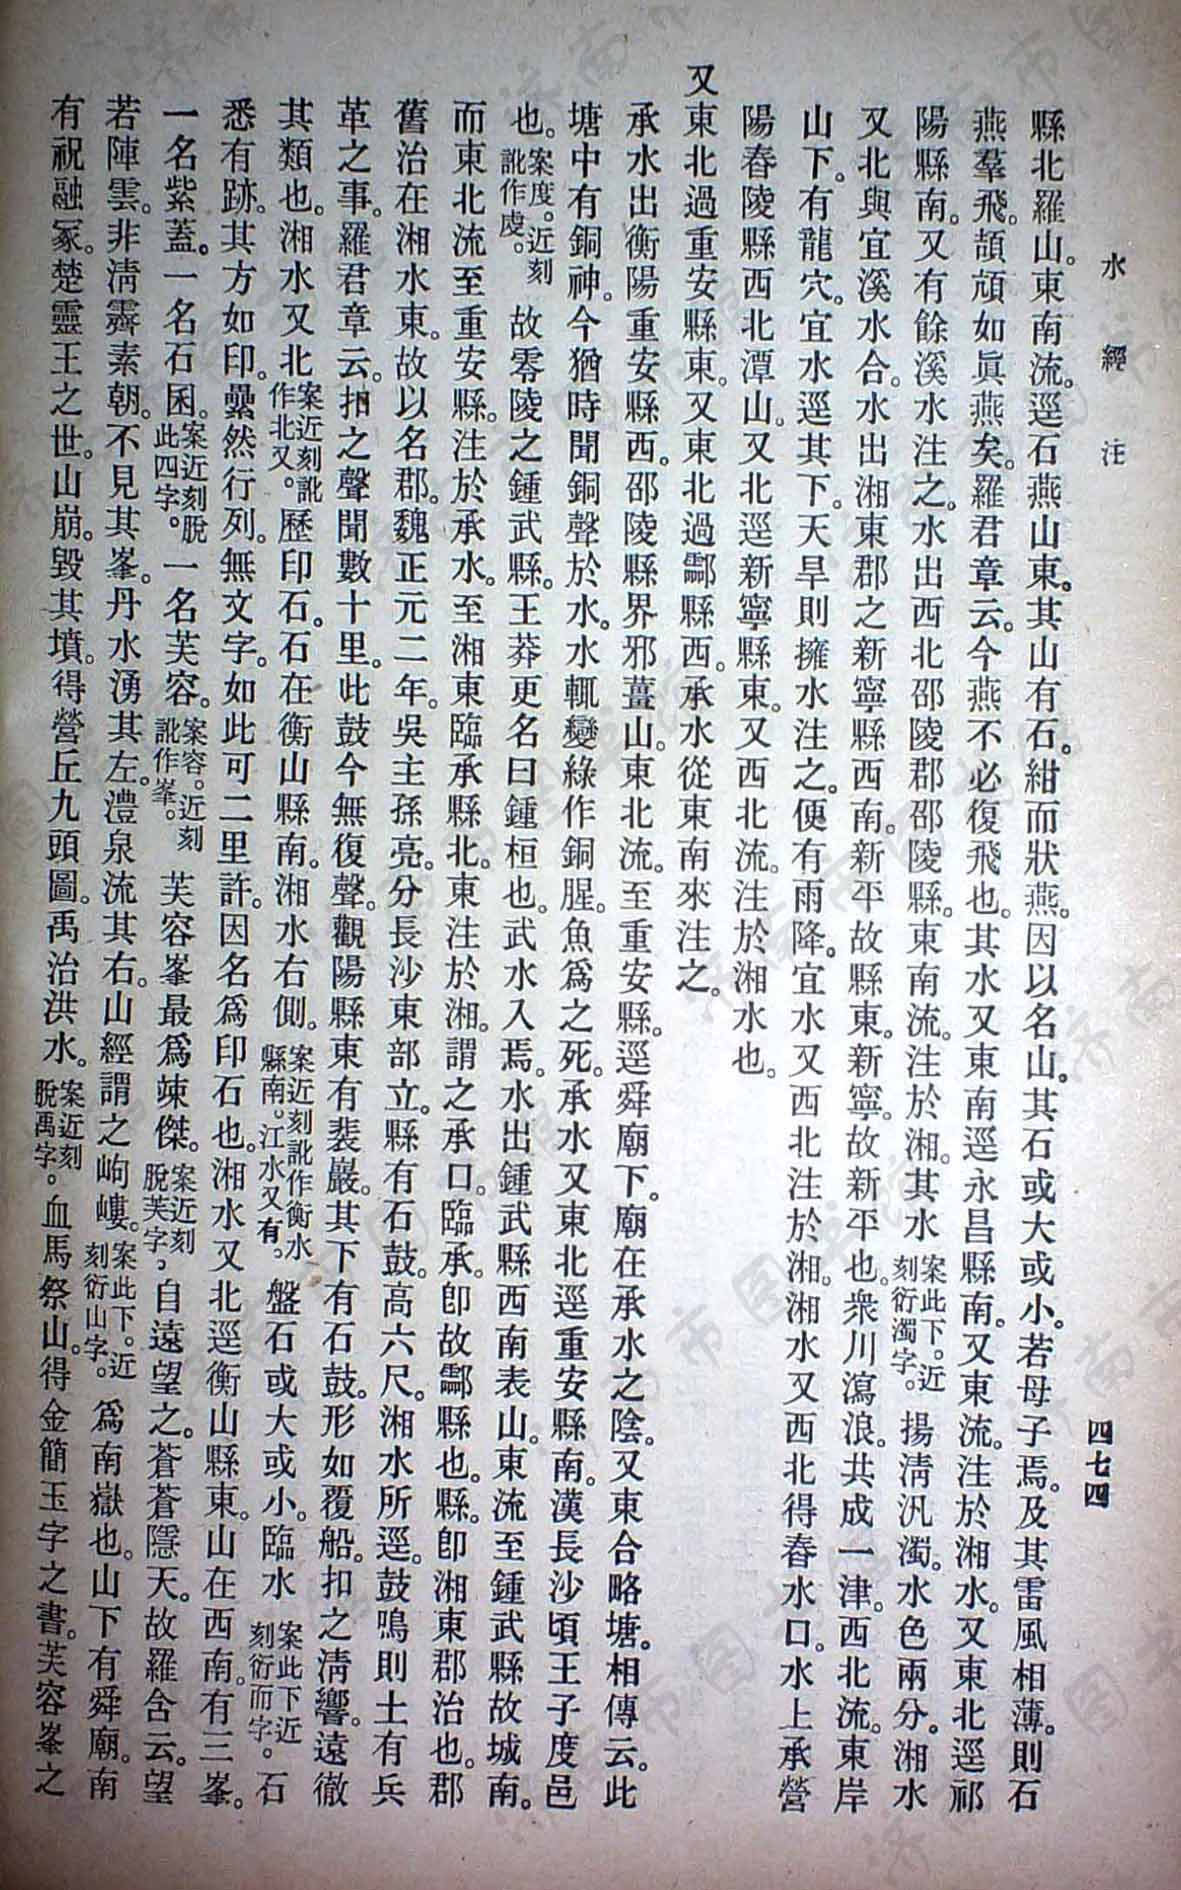 水經注
四七四
縣北羅山。東南流。逕石燕山東。其山有石。紺而狀燕。因以名山。其石或大或小。若母子焉。及其雷風相薄。則石
燕羣飛。頡頏如眞燕矣。羅君章云。今燕不必復飛也。其水又東南逕永昌縣南。又東流。注於湘水。又東北逕祁
陽縣南。又有餘溪水注之。水出西北邵陵郡邵陵縣。東南流。注於湘。其水案此下。近刻衍濁字。揚淸汎濁。水色兩分。湘水
又北與宜溪水合。水出湘東郡之新寧縣西南。新平故縣東。新寧。故新平也。衆川瀉浪。共成一津。西北流。東岸
山下。有龍穴。宜水逕其下。天旱則擁水注之。便有雨降。宜水又西北注於湘。湘水又西北得舂水口。水上承營
陽舂陵縣西北潭山。又北逕新寧縣東。又西北流。注於湘水也。
又東北過重安縣東。又東北過酃縣西。承水從東南來注之。
承水出衡陽重安縣西。邵陵縣界邪薑山。東北流。至重安縣。逕舜廟下。廟在承水之陰。又東合略塘。相傳云。此
塘中有銅神。今猶時聞銅聲於水。水輒變綠作銅腥。魚爲之死。承水又東北逕重安縣南。漢長沙頃王子度邑
也。案度。近刻訛作虔。故零陵之鍾武縣。王莽更名曰鍾桓也。武水入焉。水出鍾武縣西南表山。東流至鍾武縣故城南。
而東北流至重安縣。注於承水。至湘東臨承縣北。東注於湘。謂之承口。臨承。卽故酃縣也。縣。卽湘東郡治也。郡
舊治在湘水東。故以名郡。魏正元二年。吳主孫亮。分長沙東部立。縣有石鼓。高六尺。湘水所逕。鼓鳴則土有兵
革之事。羅君章云。扣之聲聞數十里。此鼓今無復聲。觀陽縣東有裴巖。其下有石鼓。形如覆船。扣之淸響。遠徹
其類也。湘水又北案近刻訛作北又。歷印石。石在衡山縣南。湘水右側。案近刻訛作衡水縣南。江水又有。盤石或大或小。臨水案此下近刻衍而字。石
悉有跡。其方如印。纍然行列。無文字。如此可二里許。因名爲印石也。湘水又北逕衡山縣東。山在西南。有三峯。
一名紫蓋。一名石囷。案近刻脫此四字。一名芙容。案容。近刻訛作峯。芙容峯最爲竦傑。案近刻脫芙字。自遠望之。蒼蒼隱天。故羅含云。望
若陣雲。非淸霽素朝。不見其峯。丹水湧其左。澧泉流其右。山經謂之岣嶁。案此下。近刻衍山字。爲南嶽也。山下有舜廟。南
有祝融冢。楚靈王之世。山崩。毀其墳。得營丘九頭圖。禹治洪水。案近刻脫禹字。血馬祭山。得金簡玉字之書。芙容峯之